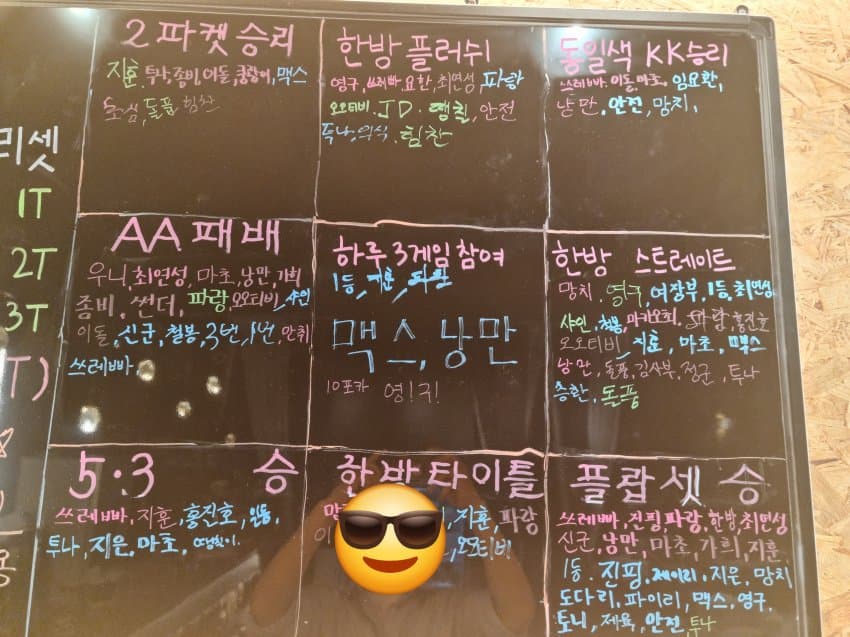 미셋
1T
2T
3T
T)
용
2파켓승리
지훈, 투나, 좀비, 이돌, 쿵랑이, 맥스
돌풍, 힘찬
한방플러쉬
영구, 쓰레빠, 요한, 최연성, 파랑
오오티비, JD, 땡칠, 안전
투나, 의식, 힘찬
동일색 KK승리
쓰레빠, 이돌, 마초, 임요환,
낭만, 안전, 망치,
AA패배
우니, 최연성, 마초, 낭만, 가희
좀비, 썬더, 파랑, 오오티비, 샤인
이돌, 신군, 철봉, 3번, 1번, 만취
쓰레빠,
하루3게임참여
1등, 지훈, 파랑
맥스, 낭만
10포카 영!구!
한방 스트레이트
망치, 영구, 여장부, 1등, 최연성
샤인, 철봉, 마카오최, 파랑, 홍진호
오오티비, 지훈, 마초, 맥스
낭만, 돌풍, 김사부, 정군, 투나
승환, 돌풍
5:3 승
쓰레빠, 지훈, 홍진호, 이돌,
투나, 지은, 마초, 땡칠이,
한방타이틀
지훈, 파랑
오오티비
플랍셋 승
쓰레빠, 진핑, 파랑, 한방, 최연성
신군, 낭만, 마초, 가희, 지훈
1등, 진핑, 제이리, 지은, 망치
도다리, 파이리, 맥스, 영구,
토니, 제육, 안전, 투나